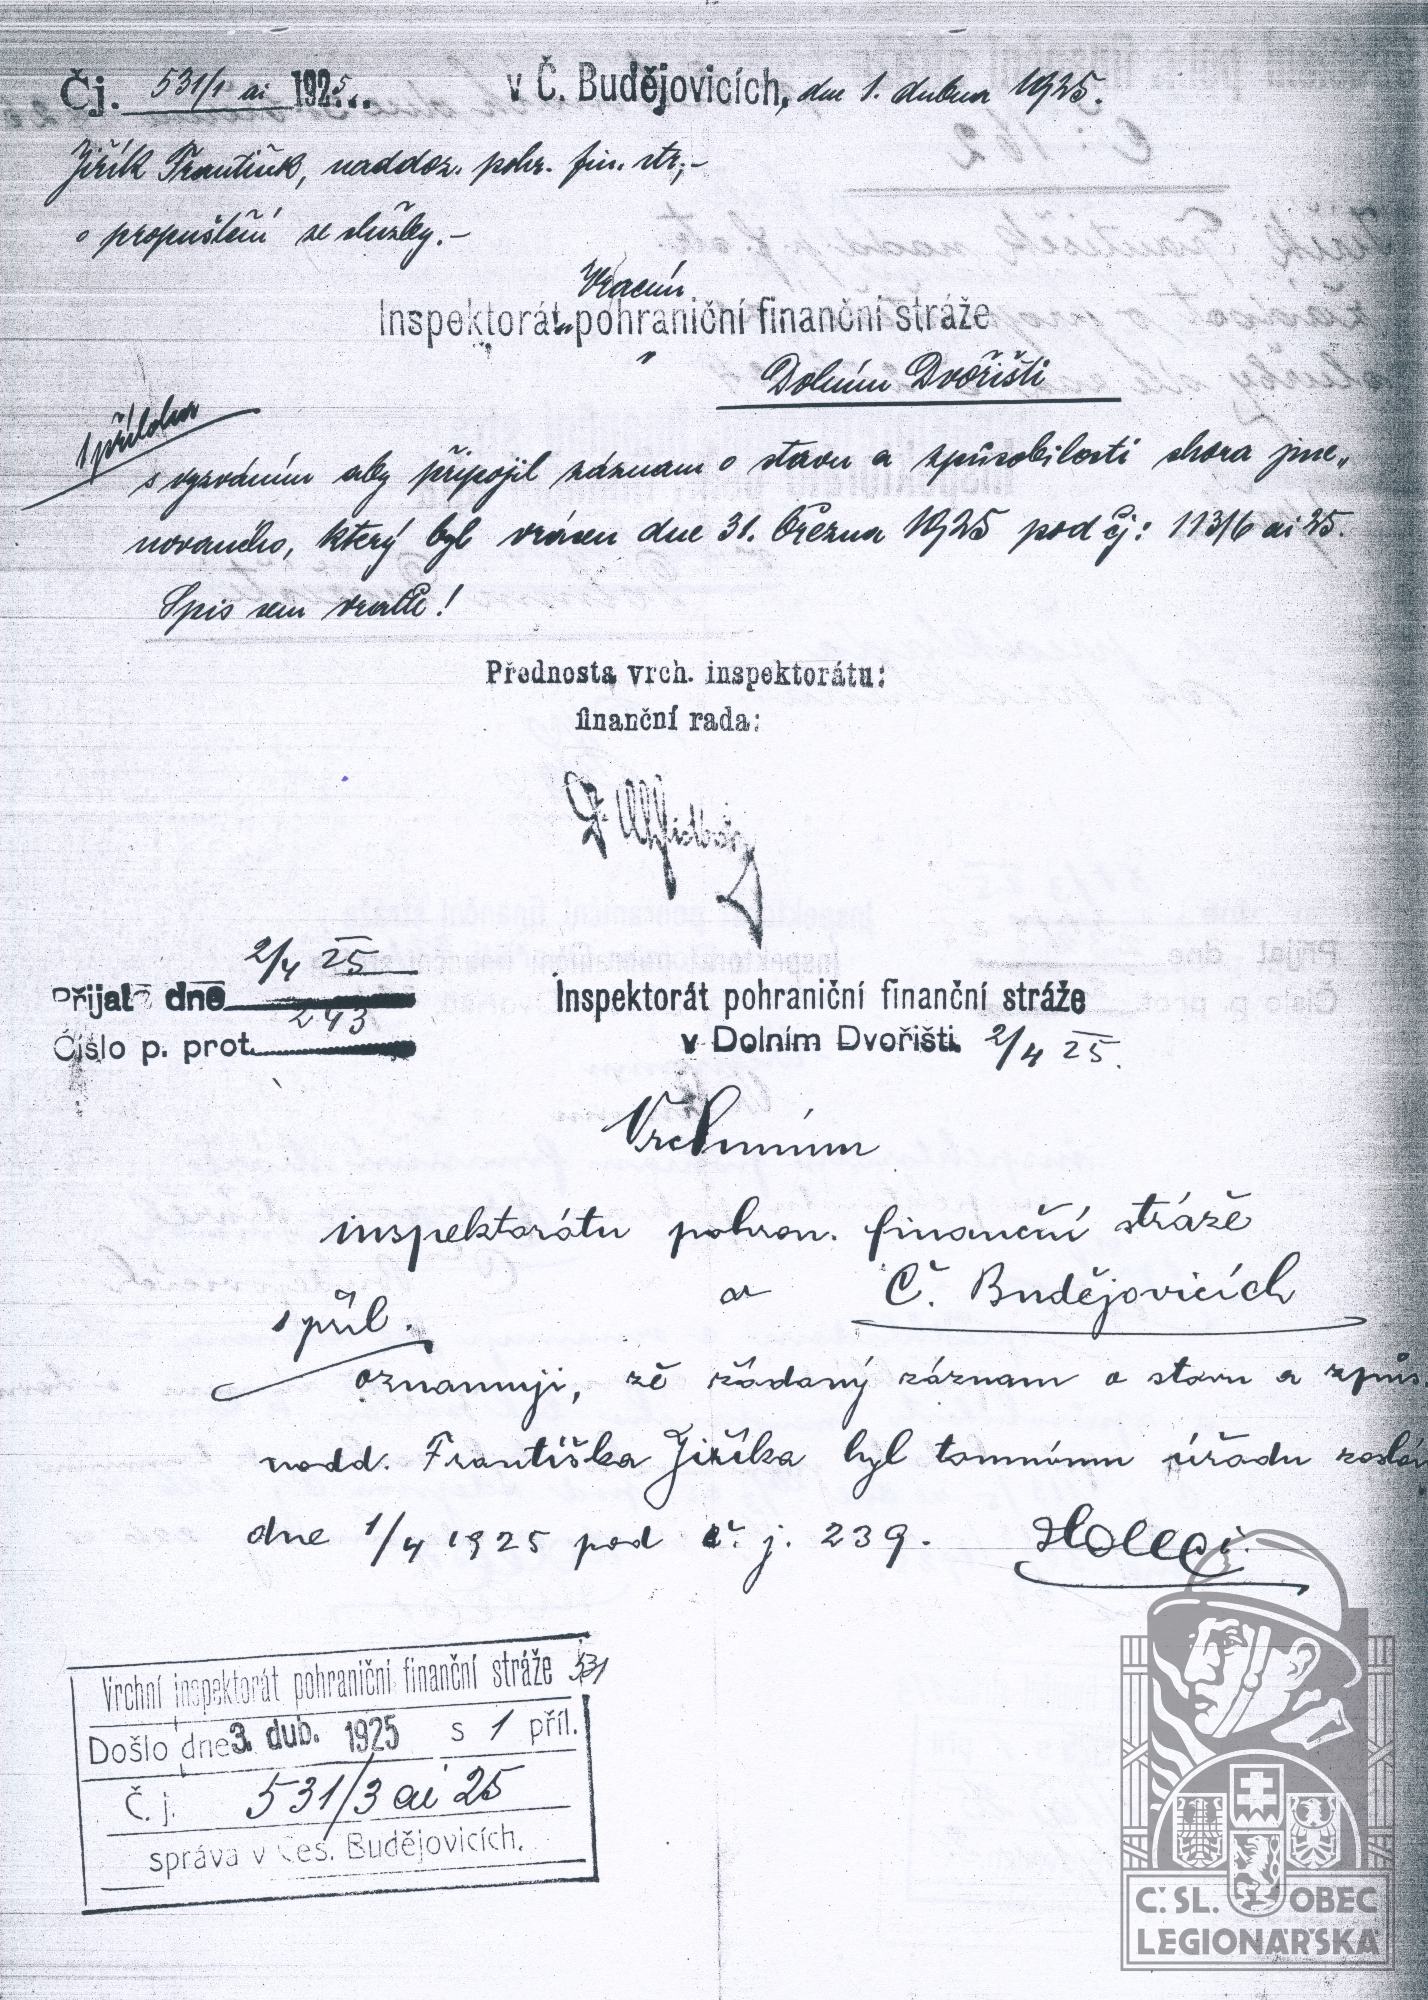 Čj. 531/1 ai 1925... v Č. Budějovicích, dne 1. dubna 1925.
Jiřík František, naddoz. pohr. fin. str.,-
o propuštění ze služby.-
Vracím
Inspektorát pohraniční finanční stráže
v Dolním Dvořišti
1 příloha
s vyzváním aby připojil záznam o stavu a způsobilosti shora jme„
novaného, který byl vrácen dne 31. března 1925 pod čj: 113/6 ai 25.
Spis sem vraťte!
Přednosta vrch. inspektorátu:
finanční rada:
Přijato dne 2/4 25
Číslo p. prot. 293
Inspektorát pohraniční finanční stráže
v Dolním Dvořišti. 2/4 25.
Vrchnímu
inspektorátu pohran. finanční stráže
v Č. Budějovicích
1 příl.
oznamuji, že žádaný záznam o stavu a způs.
nadd. Františka Jiříka byl tamnímu úřadu zaslán
dne 1/4 1925 pod č. j. 239.
Vrchní inspektorát pohraniční finanční stráže 531
Došlo dne 3. dub. 1925 s 1 příl.
Č. j. 531/3 ai 25
správa v Čes. Budějovicích.
Č.SL. OBEC
LEGIONÁŘSKÁ